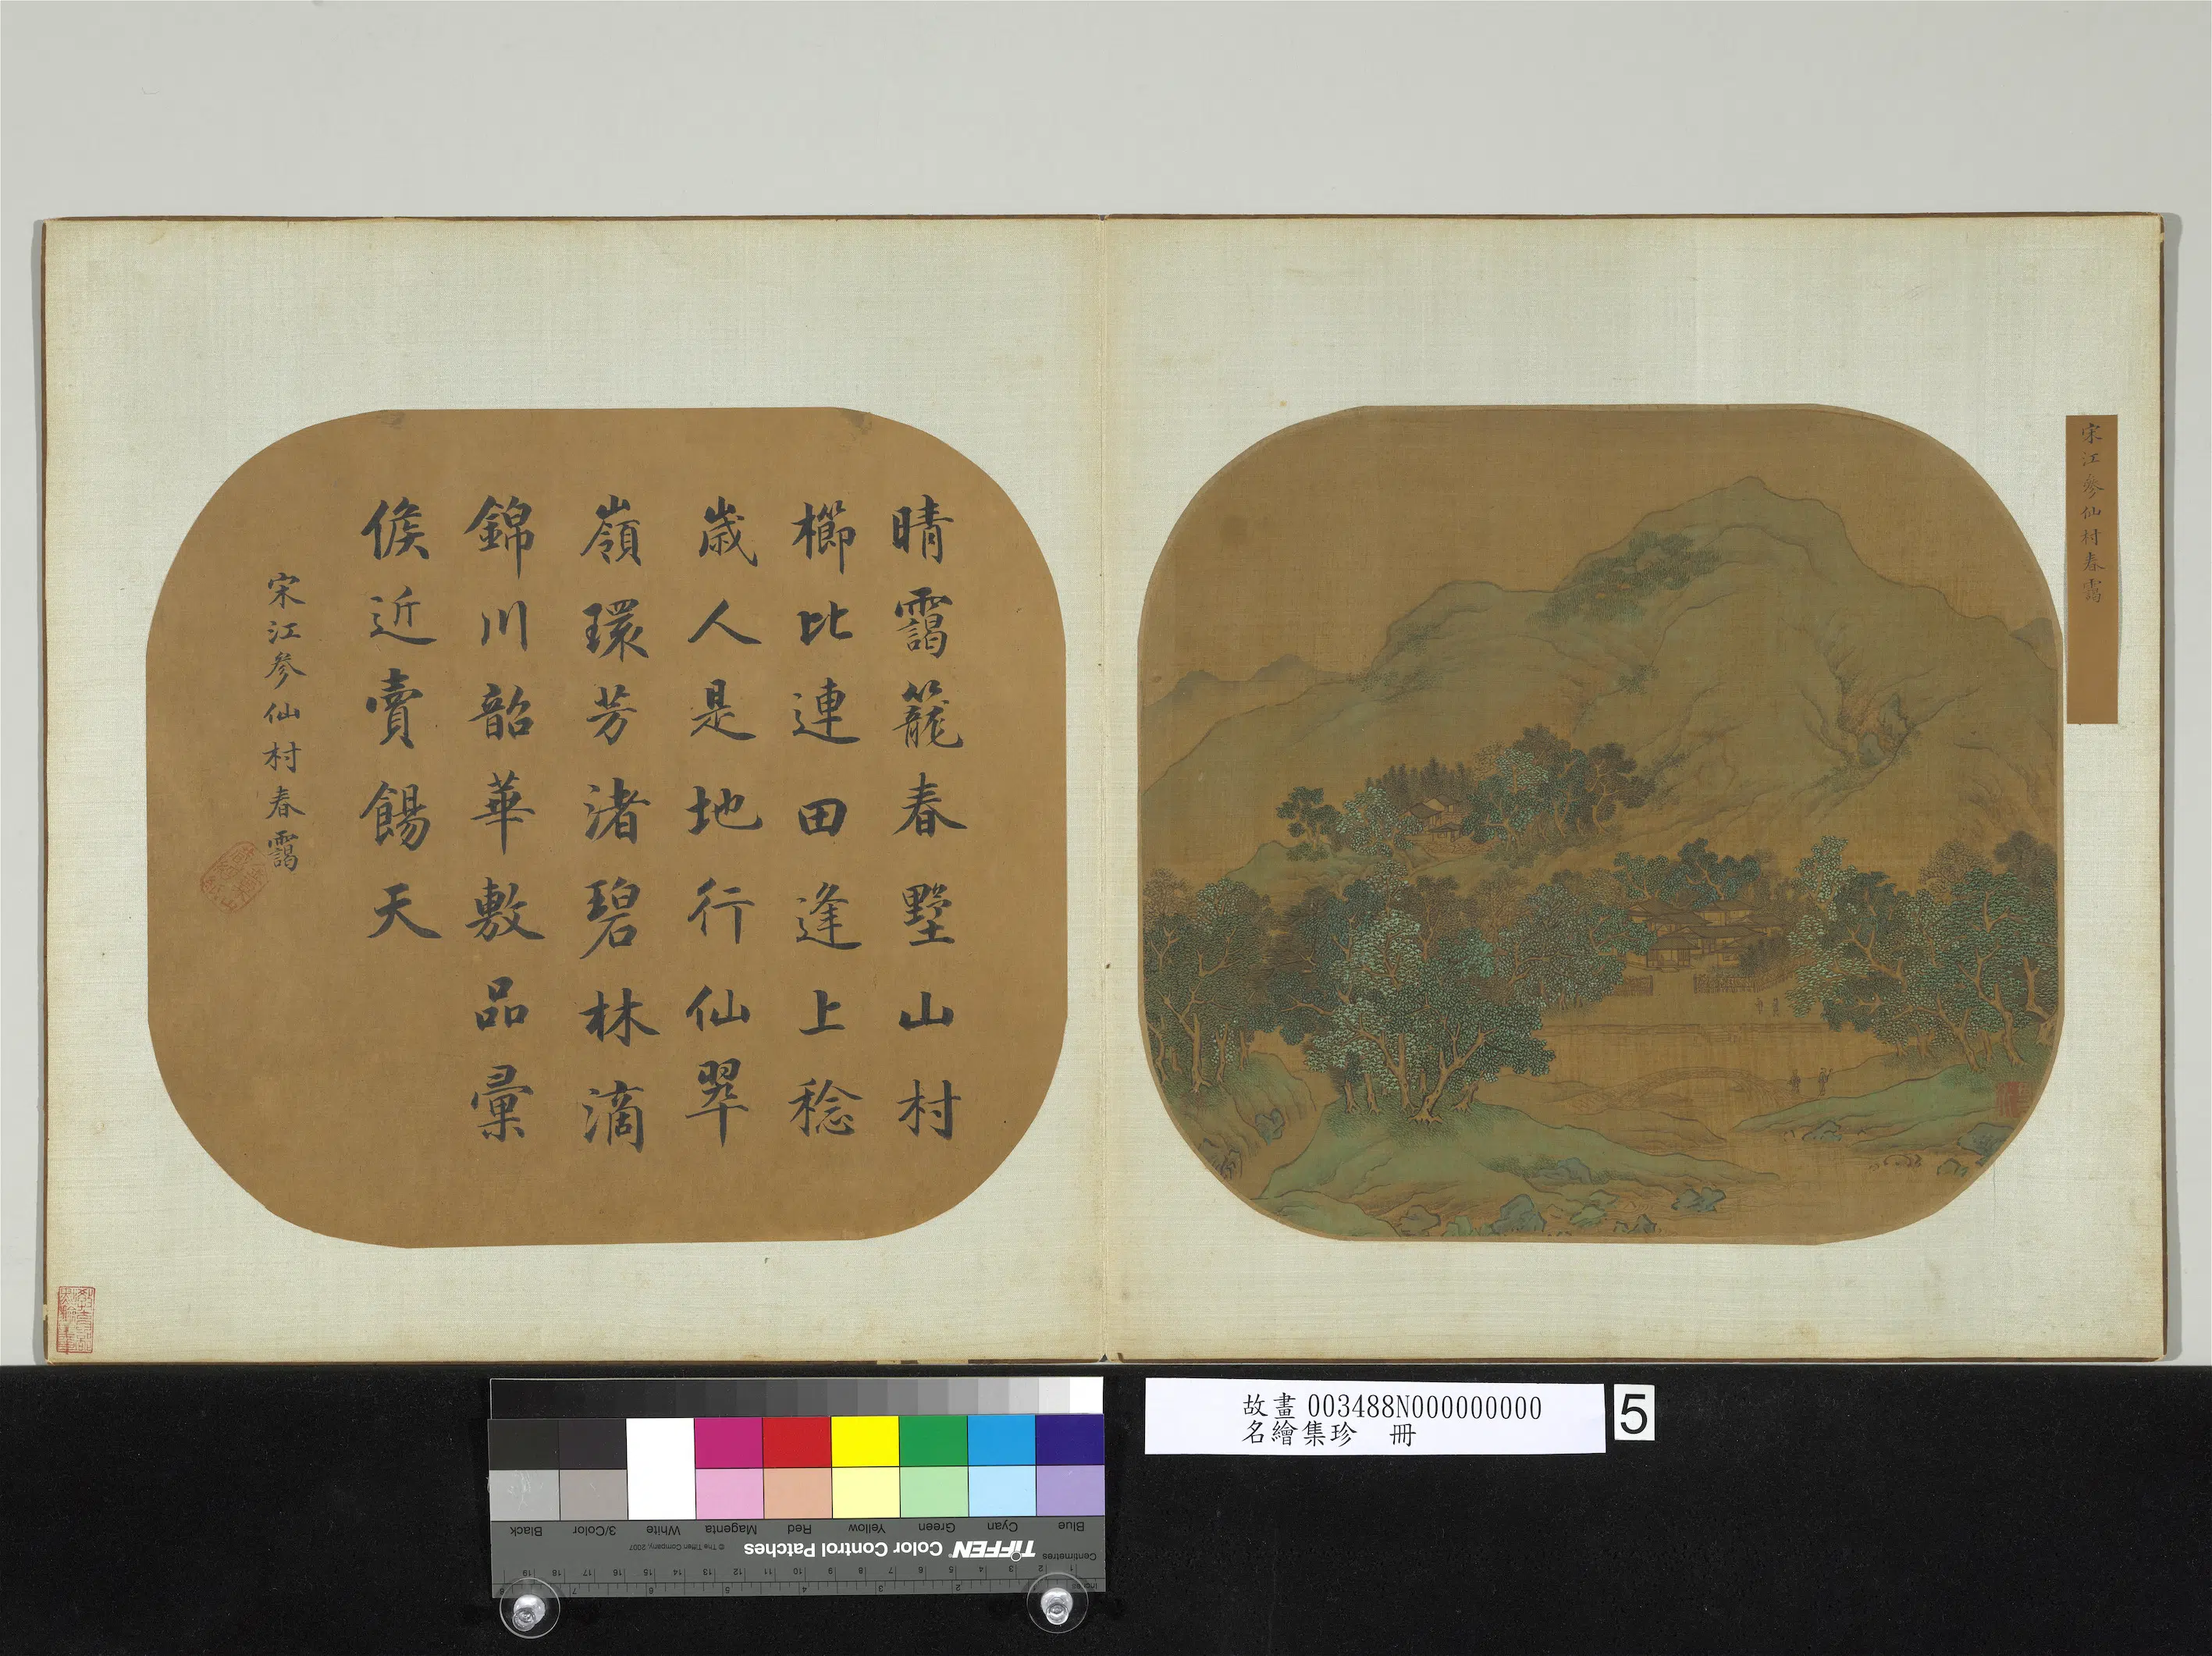 宋江參仙村春靄
晴靄籠春墅山村
櫛比連田逢上稔
歲人是地行仙翠
嶺環芳渚碧林滴
錦川韶華敷品彙
候近賣餳天
宋江參仙村春靄
故畫 003488N000000000
名繪集珍 冊
5
Black 3/Color White Magenta Red Yellow Green Cyan Blue
TIFFEN Color Control Patches © The Tiffen Company, 2007
Centimetres
1 2 3 4 5 6 7 8 9 10 11 12 13 14 15 16 17 18 19
Inches